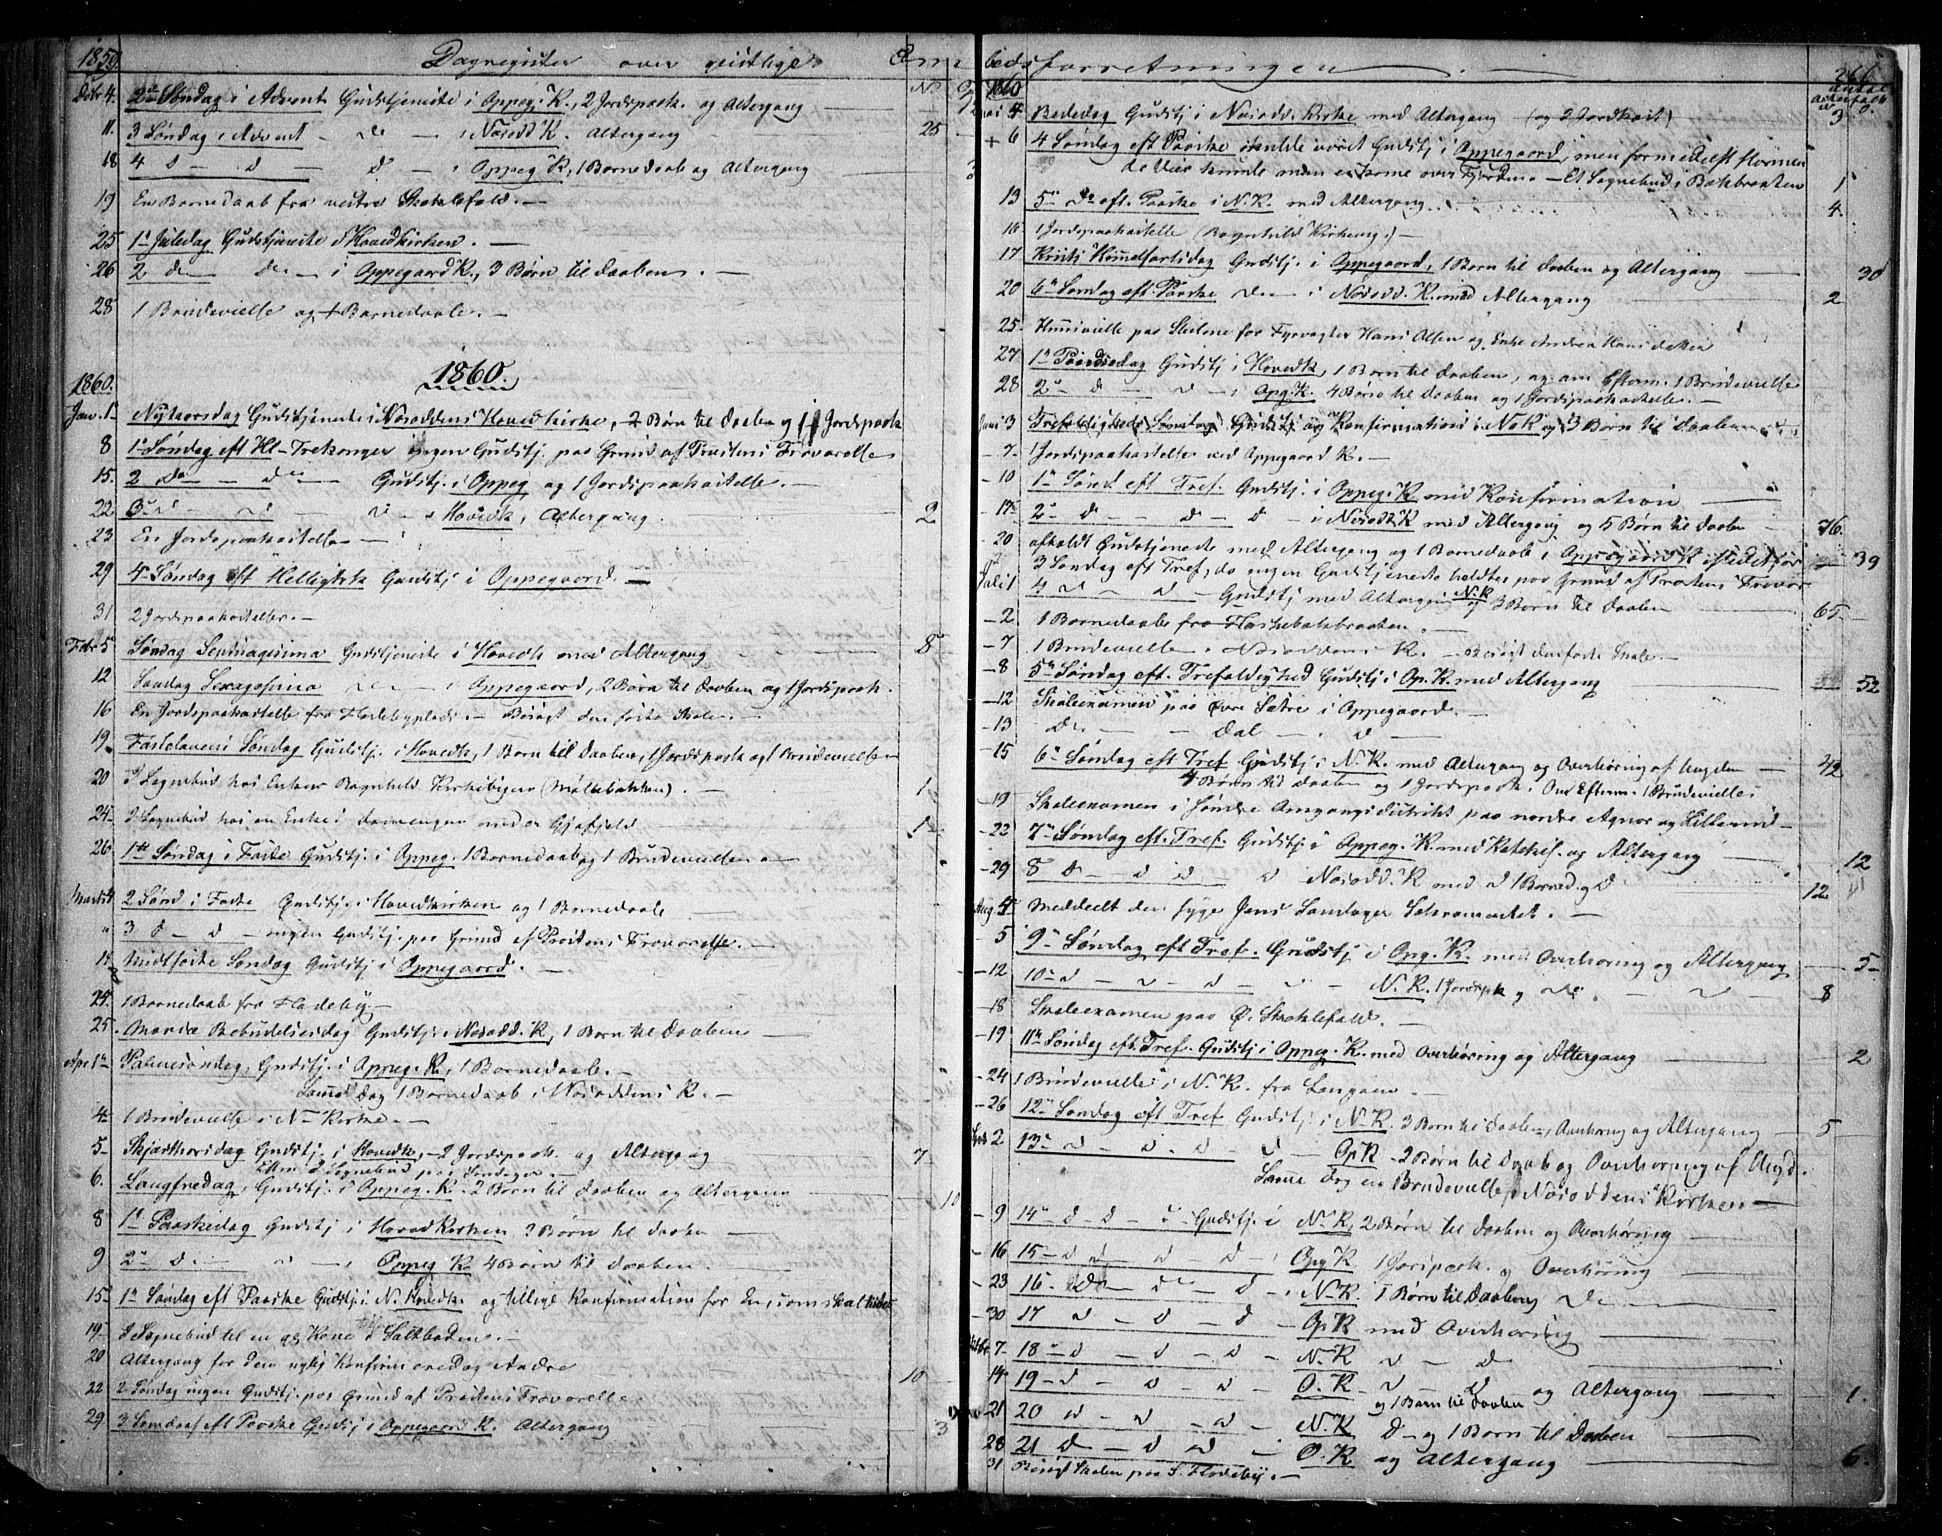 1859. Dagregister over geistlige Em
Dcbr 4. 2den Søndag i Advent Gudstjeneste i Oppeg. K., 2 Jordspaak. og Altergang
11. 3 Søndag i Advent — do — i Næsodd K. Altergang 25
18 4 d — d — d — i Oppeg K, 1 Barnedaab og Altergang 3
19 En Barnedaab fra vestre Skoklefald. —
25 1e Juledag Gudstjeneste i Hovedkirken. —
26 2 de — de — i Oppegaard K., 3 Børn til Daaben. —
28 1 Brudevielse og 1 Barnedaab. —
1860.
1860. Jan. 1e Nytaarsdag Gudstjeneste i Næsoddens Hovedkirke, 2 Børn til Daaben og 1 Jordspaak
8 1e Søndag eft Hl. Trekonger ingen Gudstj. paa Grund af Provstens Fraværelse
15. 2 de — de — Gudstj. i Oppeg og 1 Jordspaakastelse. —
22 3e d — d — d — i Hovedk, Altergang. 2
23 En Jordspaakastelse —
29 4e Søndag eft Helligtrk Gudstj i Oppegaard. —
31 2 Jordspaakastelser. —
Febr 5 Søndag Septuagesima Gudstjeneste i Hovedk med Altergang 8
12 Søndag Sexagesima do — i Oppegaard, 2 Børn til Daaben og 1 Jordspaak.
16 En Jordspaakastelse fra Fladebyplads. — Besøgt den faste Skole. —
19. Fastelavens Søndag Gudstj. i Hovedk, 1 Børn til Daaben, 1 Jordspaak og 1 Brudevielse
20 I Sognebud hos Enken Ragnhild Kirkebyeie (Møllebakken). 1
24 I Sognebud hos en Enke i under Gjefjeld 1
26. 1ste Søndag i Faste Gudstj. i Oppeg. 1 Barnedaab og 1 Brudevielse. —
Marts 4 2 Sønd i Faste Gudstj. i Hovedkirken og 1 Barnedaab
" 3 d — d — ingen Gudstj. paa Grund af Provstens Fraværelse. —
18 Midtfaste Søndag Gudstj i Oppegaard. —
24. 1 Barnedaab fra Fladeby —
25. Mariæ Bebudelsesdag Gudstj. i Næsodd. K, 1 Børn til Daaben
Apr 1e Palmesøndag, Gudstj. i Oppeg. K, 1 Barnedaab. —
Samme Dag 1 Barnedaab i Næsoddens K. —
4. 1 Brudevielse i N. Kirke. —
5. Skjærthorsdag Gudstj. i Hovedk, 2 Jordspaak. og Altergang 7
Eftm I Sognebud paa Søndager. —
6. Langfredag, Gudstj. i Oppeg. K. 2 Børn til Daaben og Altergang 10
8 1e Paaskedag Gudstj i Hovedkirken 3 Børn til Daaben
9 2e d — d — i Oppeg K. 4 Børn til Daaben.
15. 1e Søndag eft Paaske Gudstj. i N. Hovedk og tillige Konfirmation for En, som skal
19. I Sognebud til en gl Kone i Saltboden. —
20 Altergang for den nylig Konfirmerede og Andre 10
22 2 Søndag ingen Gudstj. paa Grund af Provstens Fraværelse.
29 3 Søndag eft Paaske Gudstj i Oppegaard K. Altergang 3
bedsforretningen — 266
1860 Antal Altergaster
Mai 4 Bededag Gudstj i Næsodd. Kirke med Altergang (og 2 Jordkast) 3
+ 6 4 Søndag eft Paaske skulde været Gudstj i Oppegaard, men formedelst stormen
de Veir kunde man ei komme over Fjorden — Et Sognebud i Bækbraaten 1
13 5e d eft. Paaske i N. K. med Altergang 4.
16 1 Jordspaakastelse (Ragnhild Kirkeeng.) —
17 Kristi Himmelfartsdag Gudstj. i Oppegaard, 1 Børn til Daaben og Altergang 30
20 6e Søndag eft. Paaske de — i Næsodd. K. med Altergang 2
25. Huusvielse paa Steilene for Fyrvogter Hans Alsen og Enke Andrea Hansdatter
27 1e Pindsedag Gudstj i Hovedk, 1 Børn til Daaben, og om Efterm. 1 Brudevielse
28 2e d — d — i Opg. K. 4 Børn til Daaben og 1 Jordspaakastelse. —
Juni 3 Trefoldigheds Søndag Gudstj og Konfirmation i N. K og 3 Børn til Daaben
7. 1 Jordspaakastelse ved Oppegaard K. —
— 10 1e Sønd eft Tref. Gudstj. i Oppeg. K med Konfirmation
— 17. 2e — d — d — d — i Næsodd. K med Altergang og 5 Børn til Daaben 76.
— 20 afholdt Gudstjeneste med Altergang og 1 Barnedaab i Oppegaard K istedetfor 39
3 Søndag eft Tref, da ingen Gudstjeneste holdtes paa Grund af Provstens Fravær
Juli 1 4 d — d — Gudstj med Altergang N. K og 3 Børn til Daaben 65.
— 2 1 Barnedaab fra Flaskebækbraaten. —
— 7 1 Brudevielse i Næsoddens K. — Besøgt den faste Skole. —
— 8 5e Søndag eft. Trefoldighed Gudstj i Op. K. med Altergang 52
— 12 Skoleexamen paa Øvre Sætre i Oppegaard. —
— 13 do — Dal — d —
— 15 6e Søndag eft Tref Gudstj i N. K. med Altergang og Overhøring af Ungdom 42
4 Børn til Daaben og 1 Jordspaak. Om Efterm. 1 Brudevielse
— 19 Skoleexamen i Søndre Omgangsdistrikt paa nordre Agnor og Lillerud —
— 22 7e Søndag eft. Tref. Gudstj i Oppeg. K. med Katekis. og Altergang 12
— 29 8 d — d — d d Næsodd. K med d 1 Barned. og d 12
Aug. 4 Meddeelt den syge Jens Søndager Sakramentet. —
— 5 9e Søndag eft Tref. Gudstj i Opg. K. med Overhøring og Altergang 5
— 12 10e d — d — d — N. K. 1 Jordspk og do. 8
— 18 Skoleexamen paa Ø. Skoklefald. —
— 19 11te Søndag eft Tref. Gudstj i Oppeg. K. med Overhøring og Altergang 2
— 24 1 Brudevielse i N. K. fra Langøen. —
— 26 12e Søndag eft Tref Gudstj i N. K. 3 Børn til Daaben, Overhøring og Altergang 5
Sept 2. 13e d — d. d — d — Op K 2 Børn til Daab og Overhøring af Ungd.
Samme Dag en Brudevielse i Næsoddens Kirke. —
— 9 14e d — d — d — Gudstj. i N. K, 2 Børn til Daaben og Overhøring
— 16 15 — d — d — d — Opg K 1 Jordspaak. og Overhøring
— 23 16 — de — d — N. K. 1 Børn til Daaben og de —
— 30 17 d — d — d — Op. K med Overhøring
Octbr 7. 18e — d — d — d — N. K d — d
14 19 — d — d — d — O. K d — d og Altergang 1.
og 1 Barn til Daaben
21 20 d — d — d — N. K d — og 1 Børn til Daaben
28 21 d — d d — O. K og Altergang 6.
31 Besøgt Skolen paa S. Fladeby. —